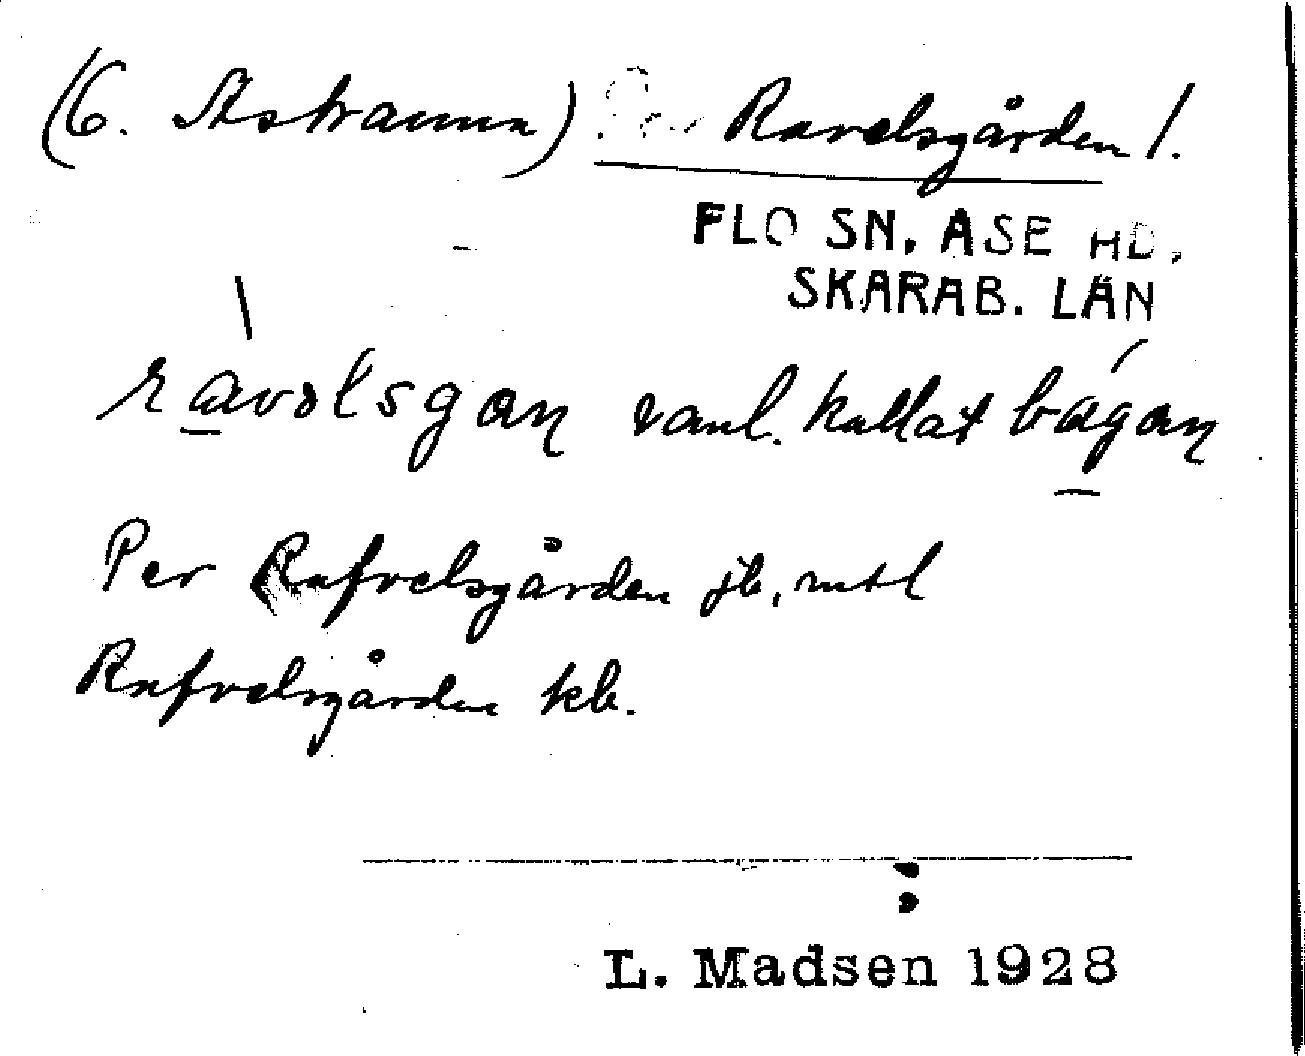 (6. Astramen) Per Ravelsgården /.
FLO SN. ÅSE HD.
SKARAB. LÄN
ravəlsgaɳ vanl. kallat bágaɳ
Per Rafvelsgården jb, mtl
Rafvelsgården kb.
L. Madsen 1928